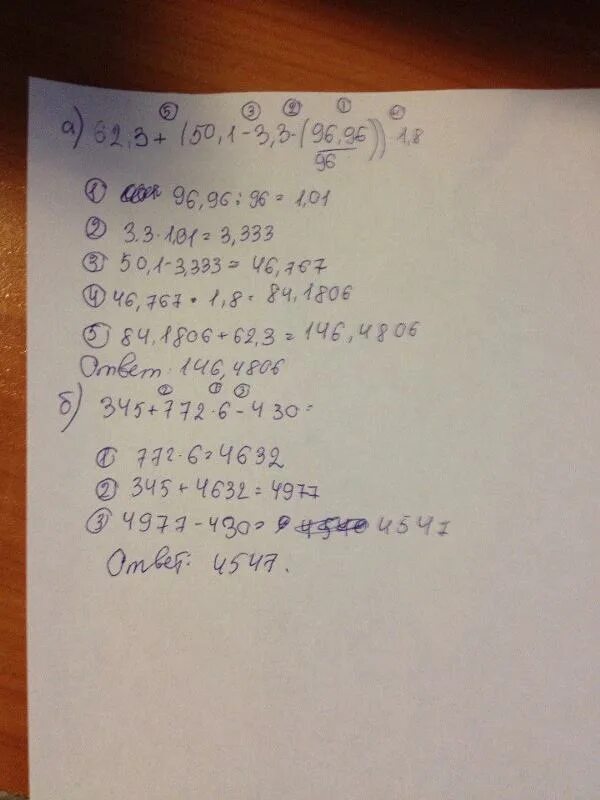 ⑤ ③ ② ① ④
а) 62,3 + (50,1 - 3,3 · (96,96/96)) · 1,8
① 96,96 : 96 = 1,01
② 3.3 · 1,01 = 3,333
③ 50,1 - 3,333 = 46,767
④ 46,767 · 1,8 = 84,1806
⑤ 84,1806 + 62,3 = 146,4806
Ответ: 146,4806
② ① ③
б) 345 + 772 · 6 - 430 =
① 772 · 6 = 4632
② 345 + 4632 = 4977
③ 4977 - 430 = 4547
Ответ: 4547.